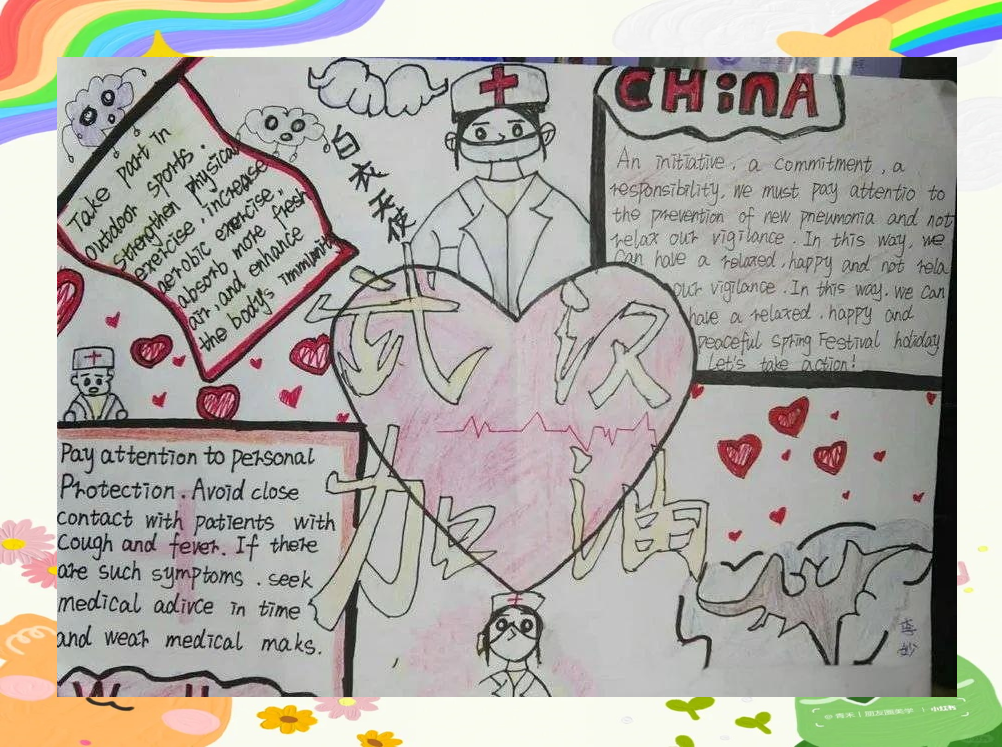 Take part in
outdoor sports.
strengthen physical
exercise. increase
aerobic exercise.
absorb more fresh
air, and enhance
the body's immunit
白衣天使
CHinA
An initiative, a commitment, a
responsibility, we must pay attentio to
the prevention of new pneumonia and not
relax our vigilance. In this way, we
Can have a relaxed, happy and not rela
our vigilance. In this way. we can
have a relaxed, happy and
peaceful Spring Festival holiday
Let's take action!
武汉
加油
Pay attention to personal
Protection. Avoid close
contact with patients with
Cough and fever. If there
are such symptoms. seek
medical adivce in time
and wear medical maks.
李妙